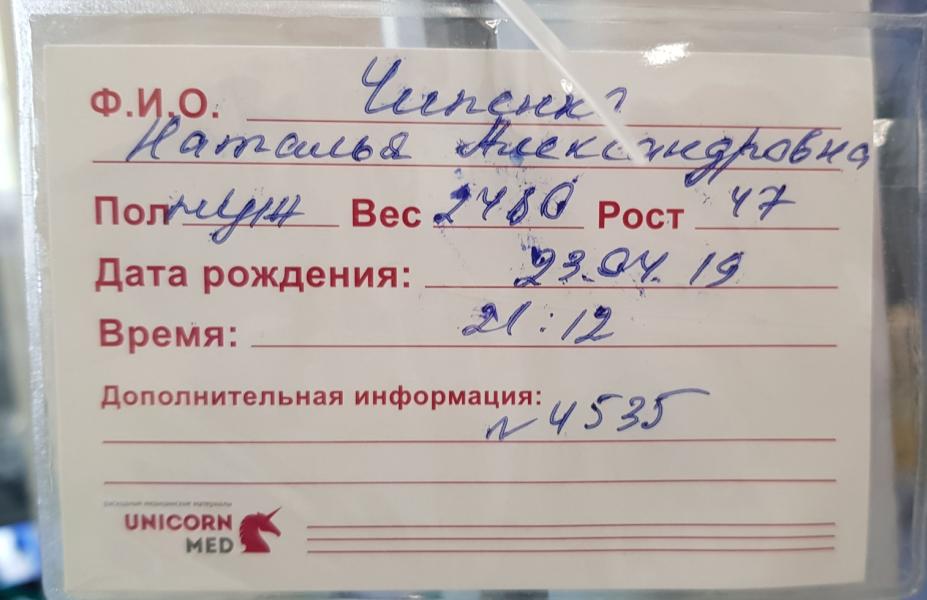 Ф.И.О. Чипенко
Наталья Александровна
Пол муж Вес 2480 Рост 47
Дата рождения: 23.04.19
Время: 21:12
Дополнительная информация:
N 4535
расходные медицинские материалы
UNICORN
MED